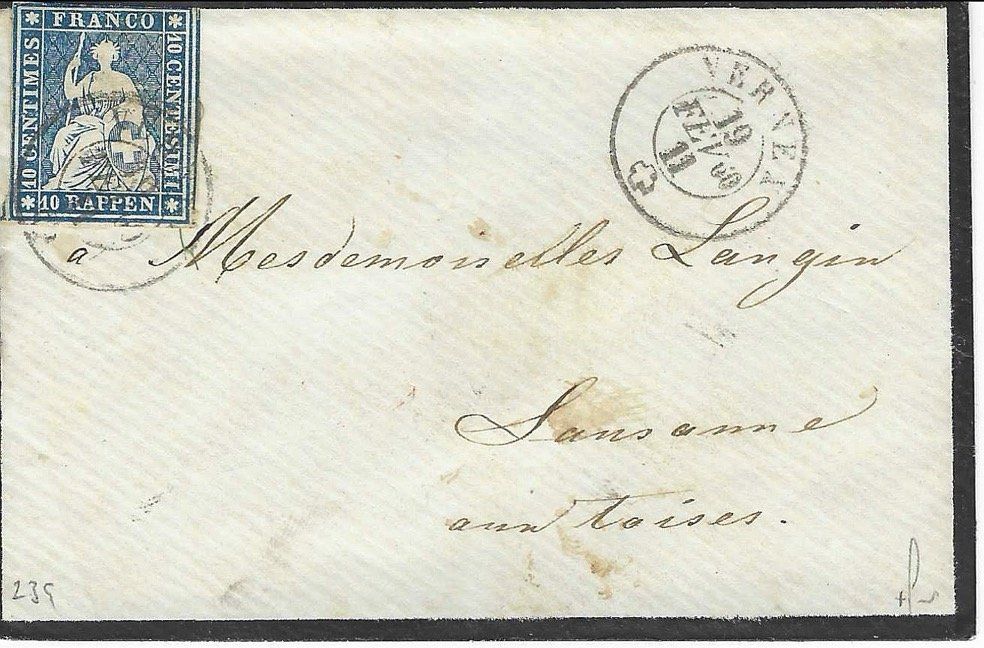 FRANCO
10 CENTIMES
10 CENTESIMI
10 RAPPEN
VERNEX
19
FEV 60
11
à Mesdemoiselles Langin
Lausanne
aux toises.
239